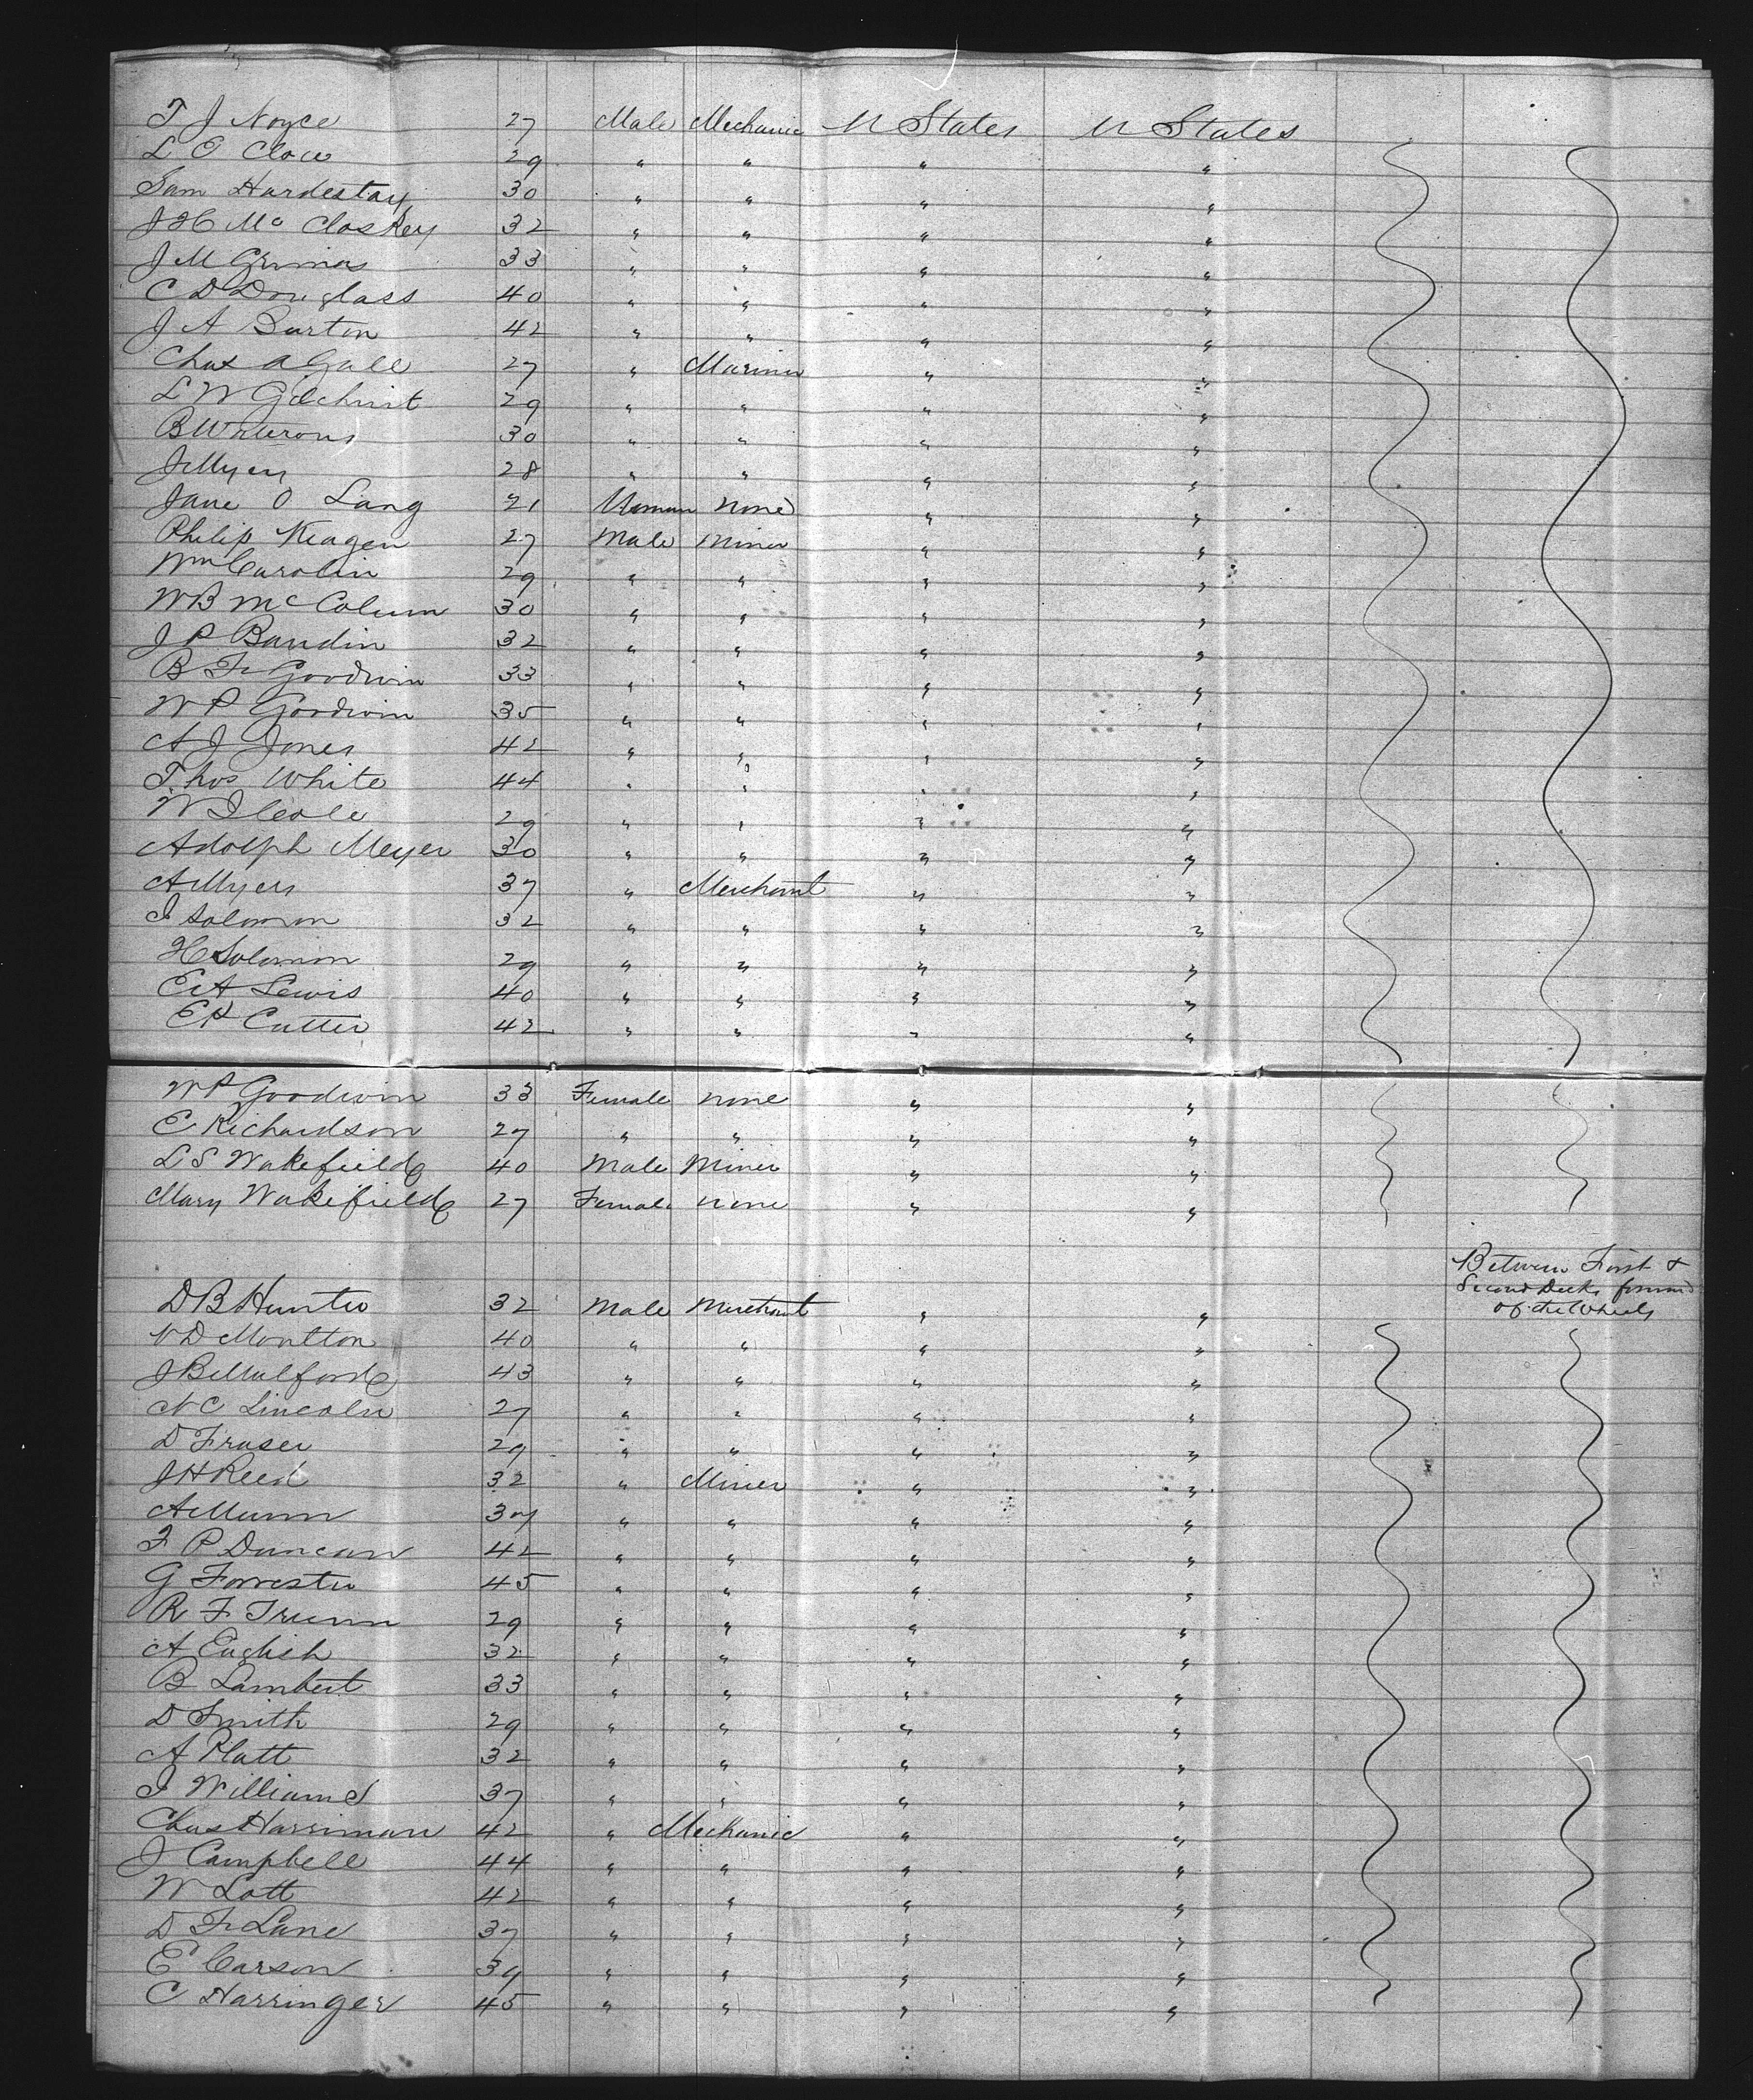 T J Noyce 27 Male Mechanic U States U States
L O Clow 29 " " " "
Sam Hardestay 30 " " " "
J H Mc Closkey 32 " " " "
J M Grimes 33 " " " "
C D Douglass 40 " " " "
J A Burton 42 " " " "
Chas A Gale 27 " Mariner " "
L W Gilchrist 29 " " " "
B Watrous 30 " " " "
J Myers 28 " " " "
Jane O Lang 21 Woman None " "
Philip Keagen 27 Male Miner " "
Wm Carolin 29 " " " "
W B Mc Colum 30 " " " "
J P Baudin 32 " " " "
B F Goodwin 33 " " " "
W P Goodwin 35 " " " "
A J Jones 42 " " " "
Thos White 44 " " " "
W J Cole 29 " " " "
Adolph Meyer 30 " " " "
A Myers 37 " Merchant " "
I Solomon 32 " " " "
H Solomon 29 " " " "
E A Lewis 40 " " " "
E H Cutter 42 " " " "
W P Goodwin 33 Female None " "
E Richardson 27 " " " "
L S Wakefield 40 Male Miner " "
Mary Wakefield 27 Female None " "
Between First &
Second Decks forward
of the Wheels
D B Hunter 32 Male Merchant " "
V D Moulton 40 " " " "
J B Mulford 43 " " " "
N C Lincoln 27 " " " "
D Fraser 29 " " " "
J H Reed 32 " Miner " "
A Munn 37 " " " "
F P Duncan 42 " " " "
G Forrester 45 " " " "
R F Trunn 29 " " " "
A English 32 " " " "
B Lambert 33 " " " "
D Smith 29 " " " "
A Platt 32 " " " "
I Williams 37 " " " "
Chas Harriman 42 " Mechanic " "
J Campbell 44 " " " "
W Lott 42 " " " "
D F Lane 37 " " " "
E Carson 39 " " " "
C Harringer 45 " " " "